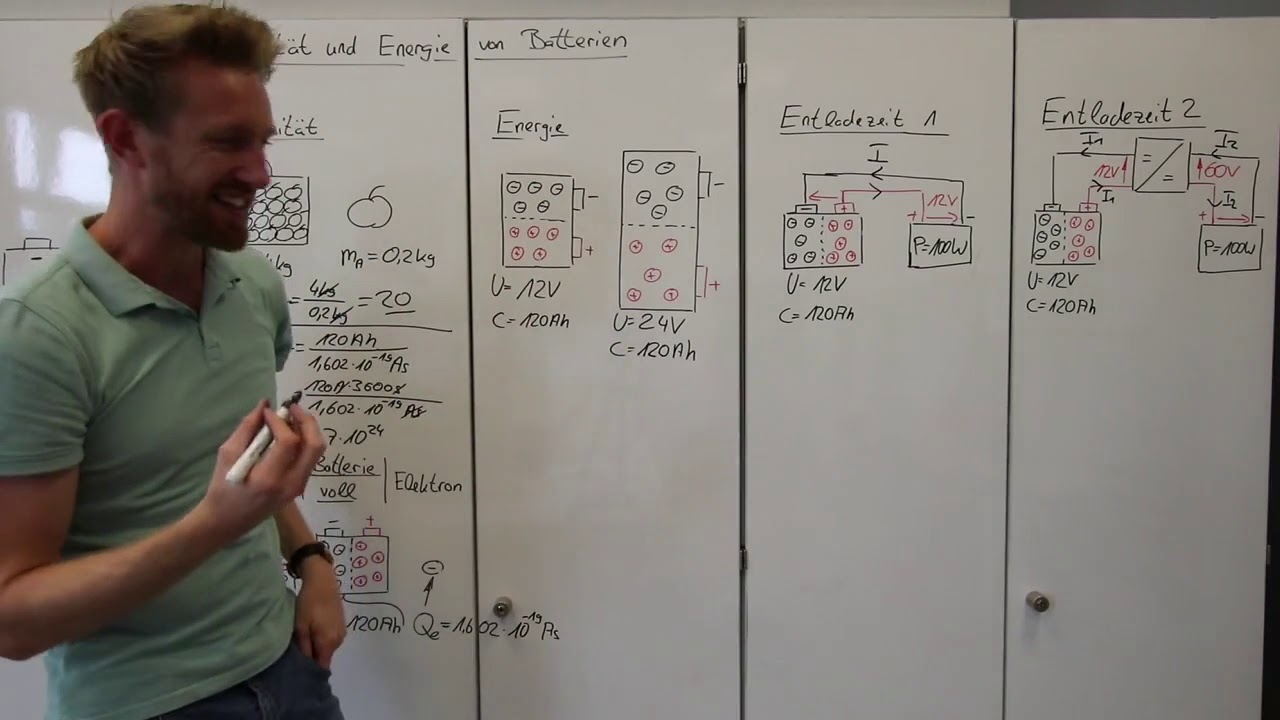 ität und Energie von Batterien
ität
mA = 0,2 kg
kg
= 4kg / 0,2kg = 20
= 120Ah / 1,602·10⁻¹⁹As
120A·3600s / 1,602·10⁻¹⁹As
7·10²⁴
Batterie voll | Elektron
- +
120Ah Qe = 1,602·10⁻¹⁹As
Energie
-
+
U = 12V
C = 120Ah
-
+
U = 24V
C = 120Ah
Entladezeit 1
I
12V
- + + -
P = 100W
U = 12V
C = 120Ah
Entladezeit 2
I1 I2
12V = / = 60V
I1 I2
- + + -
P = 100W
U = 12V
C = 120Ah